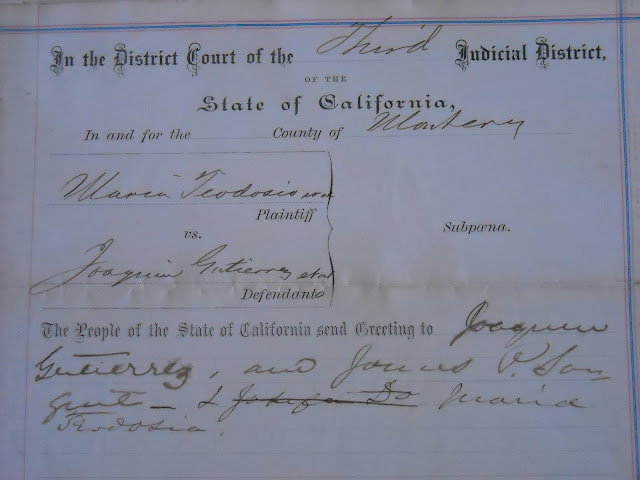 In the District Court of the Third Judicial District,
OF THE
State of California,
In and for the County of Monterey
Maria Teodosio et al
Plaintiff
vs.
Subpœna.
Joaquin Gutierrez et al
Defendants
The People of the State of California send Greeting to Joaquin
Gutierrez, and James P. Sar-
gent - & Maria
Teodosia.